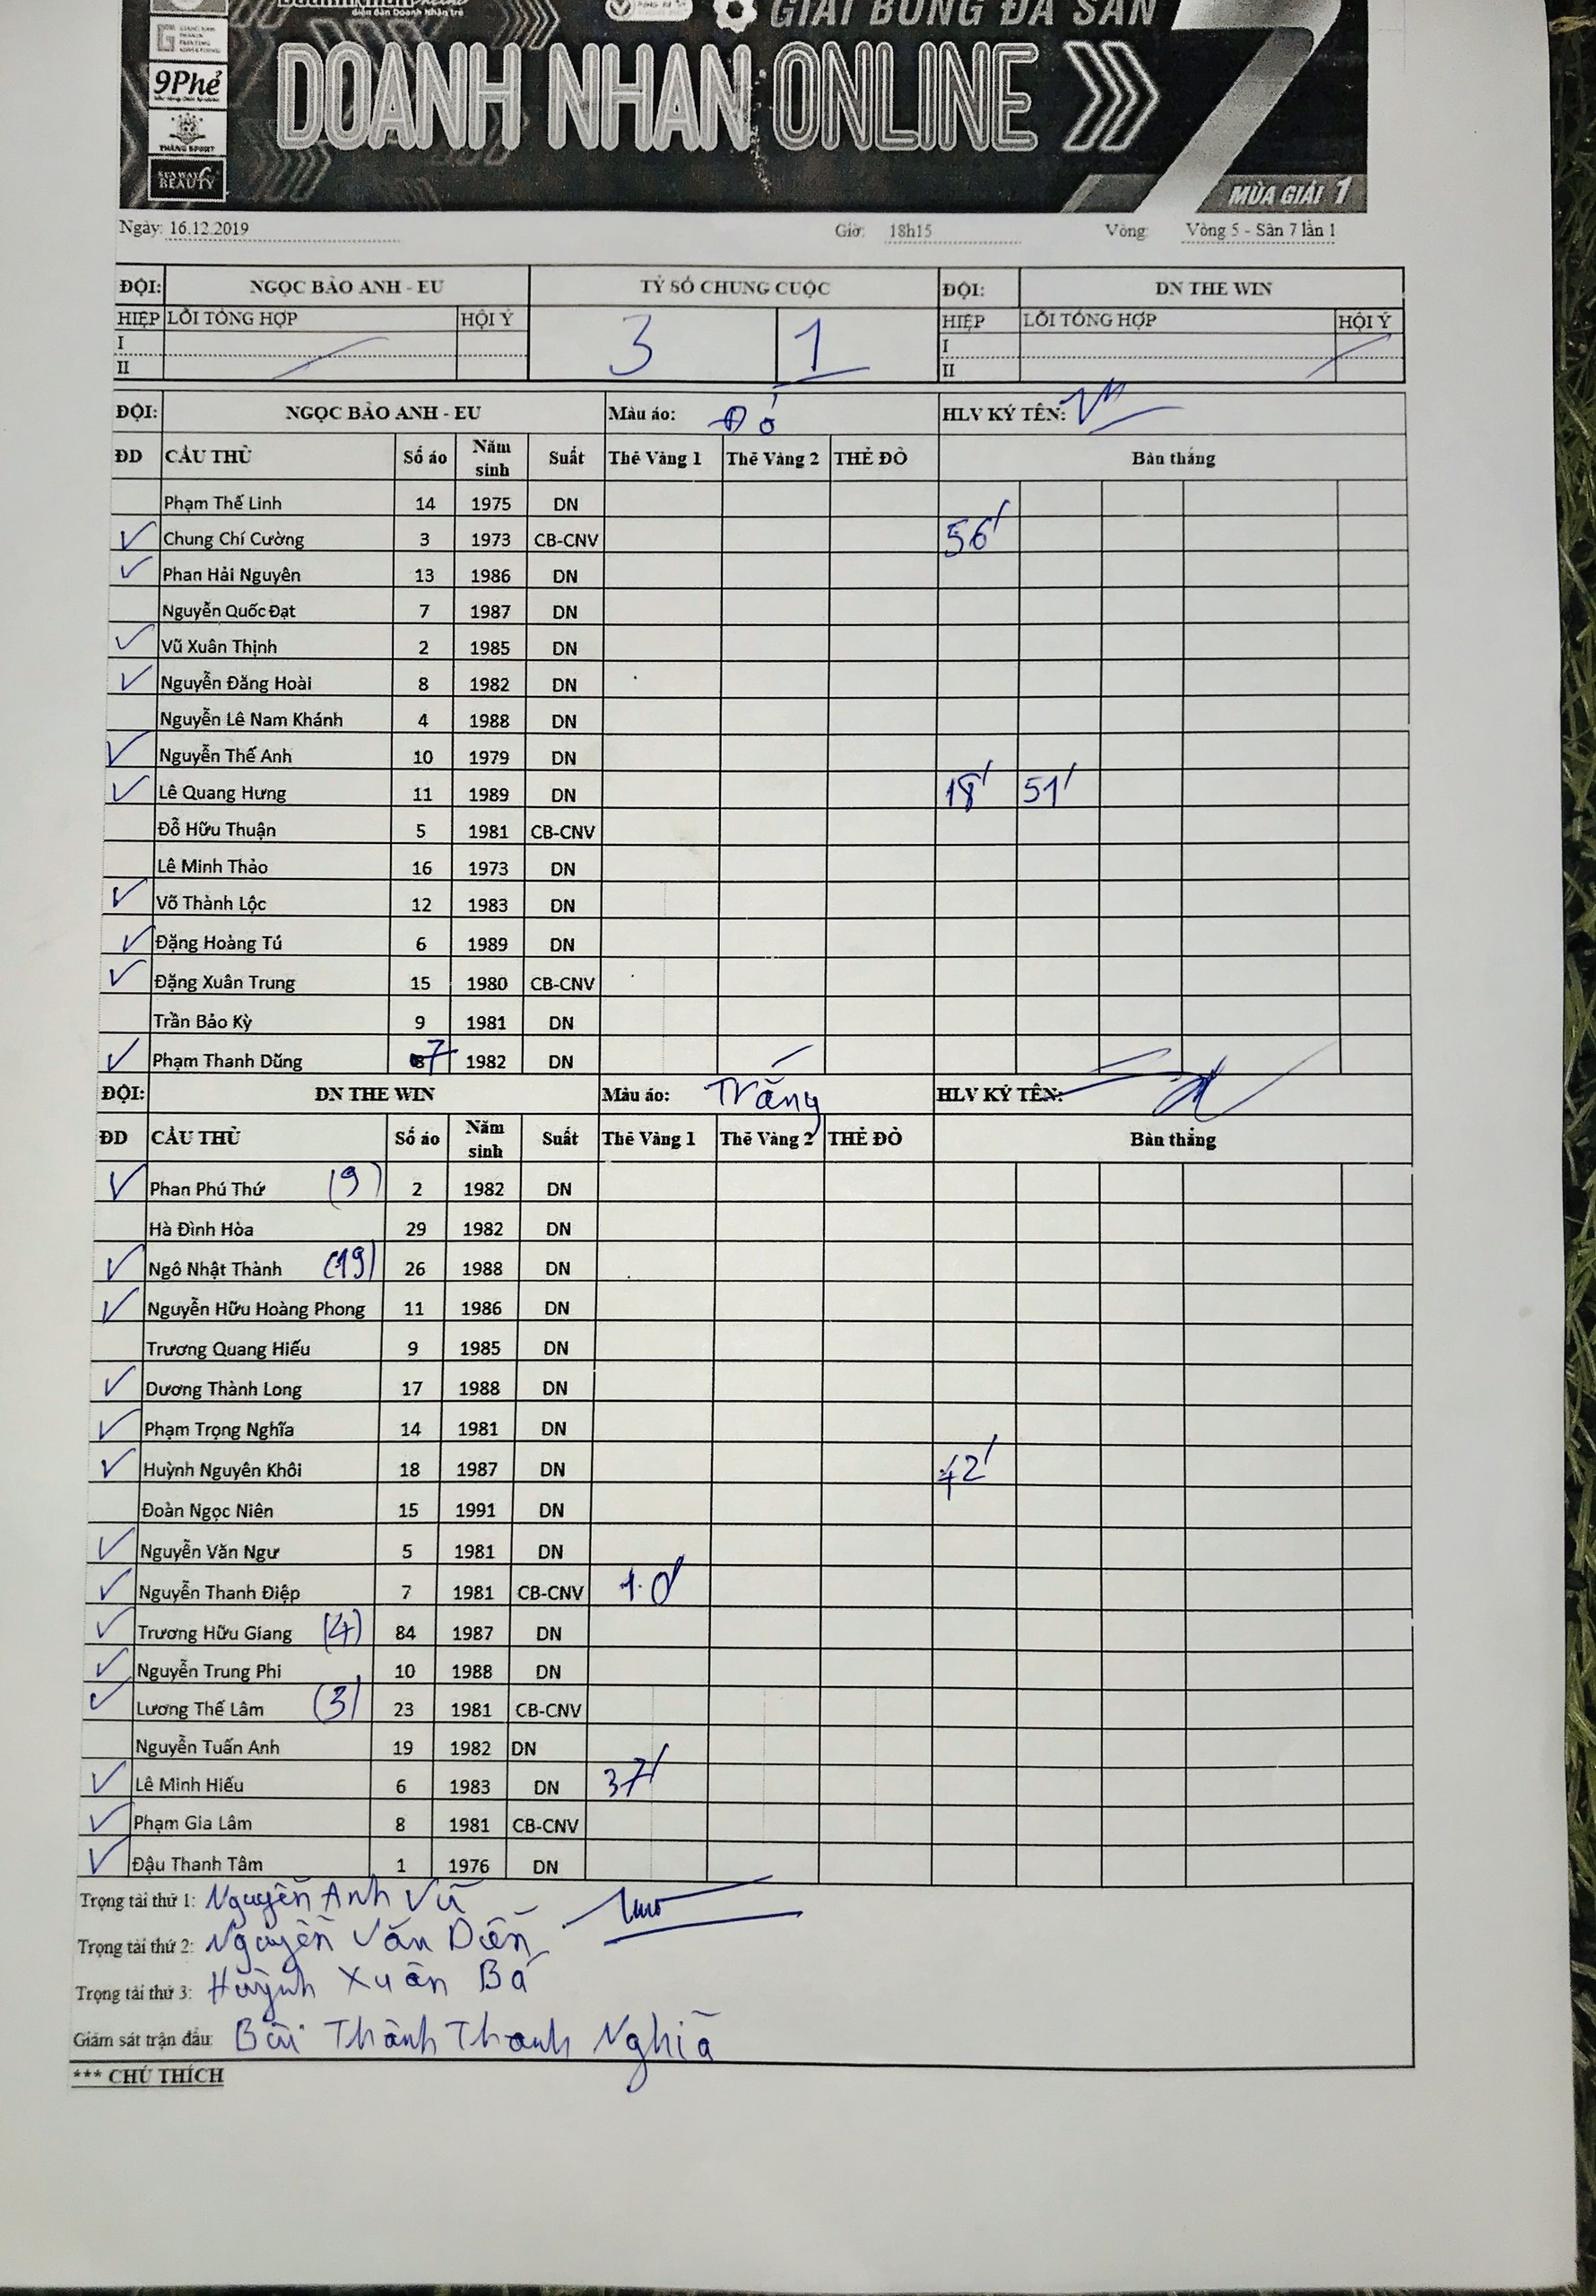 diễn đàn Doanh Nhân trẻ
GIẢI BÓNG ĐÁ SÂN 7
9Phẻ
DOANH NHÂN ONLINE
THĂNG SPORT
SUNWAY BEAUTY
MÙA GIẢI 1
Ngày: 16.12.2019 Giờ: 18h15 Vòng: Vòng 5 - Sân 7 lần 1
ĐỘI: NGỌC BẢO ANH - EU TỶ SỐ CHUNG CUỘC ĐỘI: DN THE WIN
HIỆP LỖI TỔNG HỢP HỘI Ý 3 1 HIỆP LỖI TỔNG HỢP HỘI Ý
I I
II II
ĐỘI: NGỌC BẢO ANH - EU Màu áo: Đỏ HLV KÝ TÊN:
ĐD CẦU THỦ Số áo Năm sinh Suất Thẻ Vàng 1 Thẻ Vàng 2 THẺ ĐỎ Bàn thắng
Phạm Thế Linh 14 1975 DN
✓ Chung Chí Cường 3 1973 CB-CNV 56'
✓ Phan Hải Nguyên 13 1986 DN
Nguyễn Quốc Đạt 7 1987 DN
✓ Vũ Xuân Thịnh 2 1985 DN
✓ Nguyễn Đăng Hoài 8 1982 DN
Nguyễn Lê Nam Khánh 4 1988 DN
✓ Nguyễn Thế Anh 10 1979 DN
✓ Lê Quang Hưng 11 1989 DN 18' 51'
Đỗ Hữu Thuận 5 1981 CB-CNV
Lê Minh Thảo 16 1973 DN
✓ Võ Thành Lộc 12 1983 DN
✓ Đặng Hoàng Tú 6 1989 DN
✓ Đặng Xuân Trung 15 1980 CB-CNV
Trần Bảo Kỳ 9 1981 DN
✓ Phạm Thanh Dũng 7 1982 DN
ĐỘI: DN THE WIN Màu áo: Trắng HLV KÝ TÊN:
ĐD CẦU THỦ Số áo Năm sinh Suất Thẻ Vàng 1 Thẻ Vàng 2 THẺ ĐỎ Bàn thắng
✓ Phan Phú Thứ (9) 2 1982 DN
Hà Đình Hòa 29 1982 DN
✓ Ngô Nhật Thành (19) 26 1988 DN
✓ Nguyễn Hữu Hoàng Phong 11 1986 DN
Trương Quang Hiếu 9 1985 DN
✓ Dương Thành Long 17 1988 DN
✓ Phạm Trọng Nghĩa 14 1981 DN
✓ Huỳnh Nguyên Khôi 18 1987 DN 42'
Đoàn Ngọc Niên 15 1991 DN
✓ Nguyễn Văn Ngư 5 1981 DN
✓ Nguyễn Thanh Điệp 7 1981 CB-CNV 10'
✓ Trương Hữu Giang (4) 84 1987 DN
✓ Nguyễn Trung Phi 10 1988 DN
✓ Lương Thế Lâm (3) 23 1981 CB-CNV
Nguyễn Tuấn Anh 19 1982 DN
✓ Lê Minh Hiếu 6 1983 DN 37'
✓ Phạm Gia Lâm 8 1981 CB-CNV
✓ Đậu Thanh Tâm 1 1976 DN
Trọng tài thứ 1: Nguyễn Anh Vũ
Trọng tài thứ 2: Nguyễn Văn Diễn
Trọng tài thứ 3: Huỳnh Xuân Bá
Giám sát trận đấu: Bùi Thành Thanh Nghĩa
*** CHÚ THÍCH